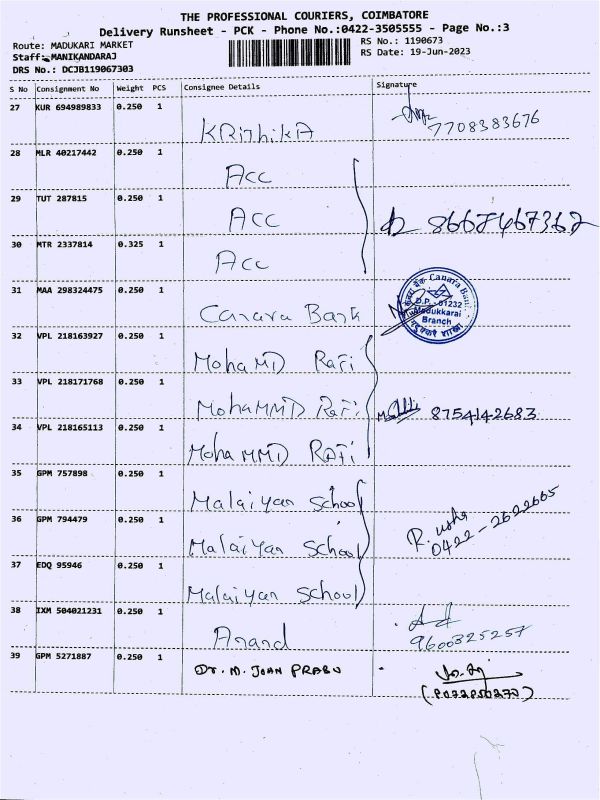 THE PROFESSIONAL COURIERS, COIMBATORE
Delivery Runsheet - PCK - Phone No.:0422-3505555 - Page No.:3
Route: MADUKARI MARKET
RS No.: 1190673
Staff: MANIKANDARAJ
RS Date: 19-Jun-2023
DRS No.: DCJB119067303
S No Consignment No Weight PCS Consignee Details Signature
27 KUR 694989833 0.250 1
KRithikA 7708383676
28 MLR 40217442 0.250 1
Acc
29 TUT 287815 0.250 1
Acc 8668467362
30 MTR 2337814 0.325 1
Acc
31 MAA 298324475 0.250 1
Canara Bank
Canara Bank
D.P.-01232
Madukkarai
Branch
32 VPL 218163927 0.250 1
MohaMD Rafi
33 VPL 218171768 0.250 1
MohaMMD Rafi 8754142683
34 VPL 218165113 0.250 1
MohaMMD RAfi
35 GPM 757898 0.250 1
Malaiyan School
36 GPM 794479 0.250 1
Malaiyan School
R. usha
0422-2622665
37 EDQ 95946 0.250 1
Malaiyan School
38 IXM 504021231 0.250 1
Anand
9600325257
39 GPM 5271887 0.250 1
Dr. M. JOHN PRABU